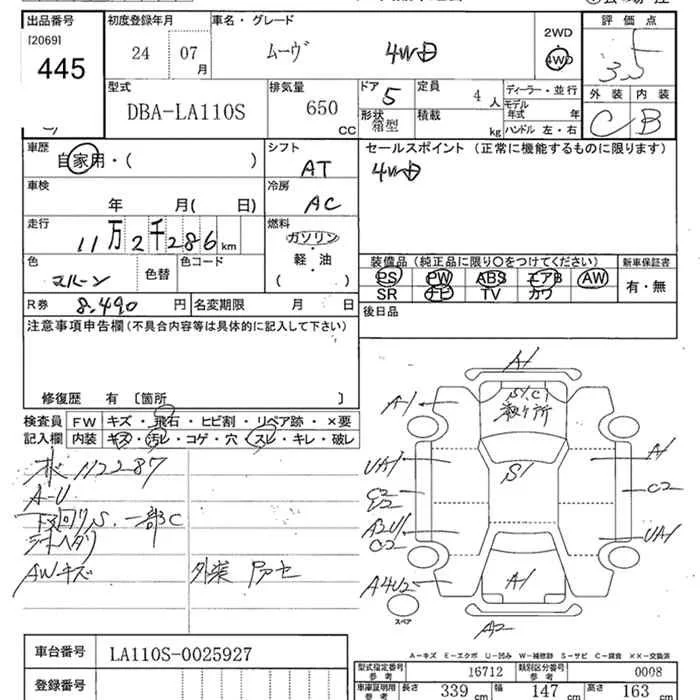 出品番号 初度登録年月 車名・グレード 評価点
[2069] 24 07 月 ムーヴ 4WD 2WD 4WD 3.5
445
型式 DBA-LA110S 排気量 650 CC ドア 5 定員 4 人 ディーラー・並行 外装 内装
形状 箱型 積載 kg モデル年式 年 ハンドル 左・右 C B
車歴 自家用・( ) シフト AT セールスポイント (正常に機能するものに限ります)
4WD
車検 年 月( 日) 冷房 AC
走行 11万2千286 km 燃料 ガソリン・軽・油 ( )
色 マルーン 色替 色コード
装備品 (純正品に限り○をつけてください) 新車保証書
PS PW ABS エアB AW 有・無
SR ナビ TV カワ
R券 8,490 円 名変期限 月 日 後日品
注意事項申告欄 (不具合内容等は具体的に記入して下さい)
修復歴 有 〔箇所 〕
検査員 FW キズ・飛石・ヒビ割・リペア跡・×要
記入欄 内装 キズ・汚レ・コゲ・穴・スレ・キレ・破レ
112287
A-U
下回りS、一部C
シートヘタリ
AWキズ
A1
S1,C1
A-1
A1
UA1
S1
C2
C2
UA1
A1
A4U2
A2
スペア
A-キズ E-エクボ U-凹み W-補修跡 S-サビ C-腐食 ××-交換済
車台番号 LA110S-0025927
登録番号
型式指定番号 参考 16712 類別区分番号 参考 0008
車庫証明用 参考 長さ 339 cm 幅 147 cm 高さ 163 cm